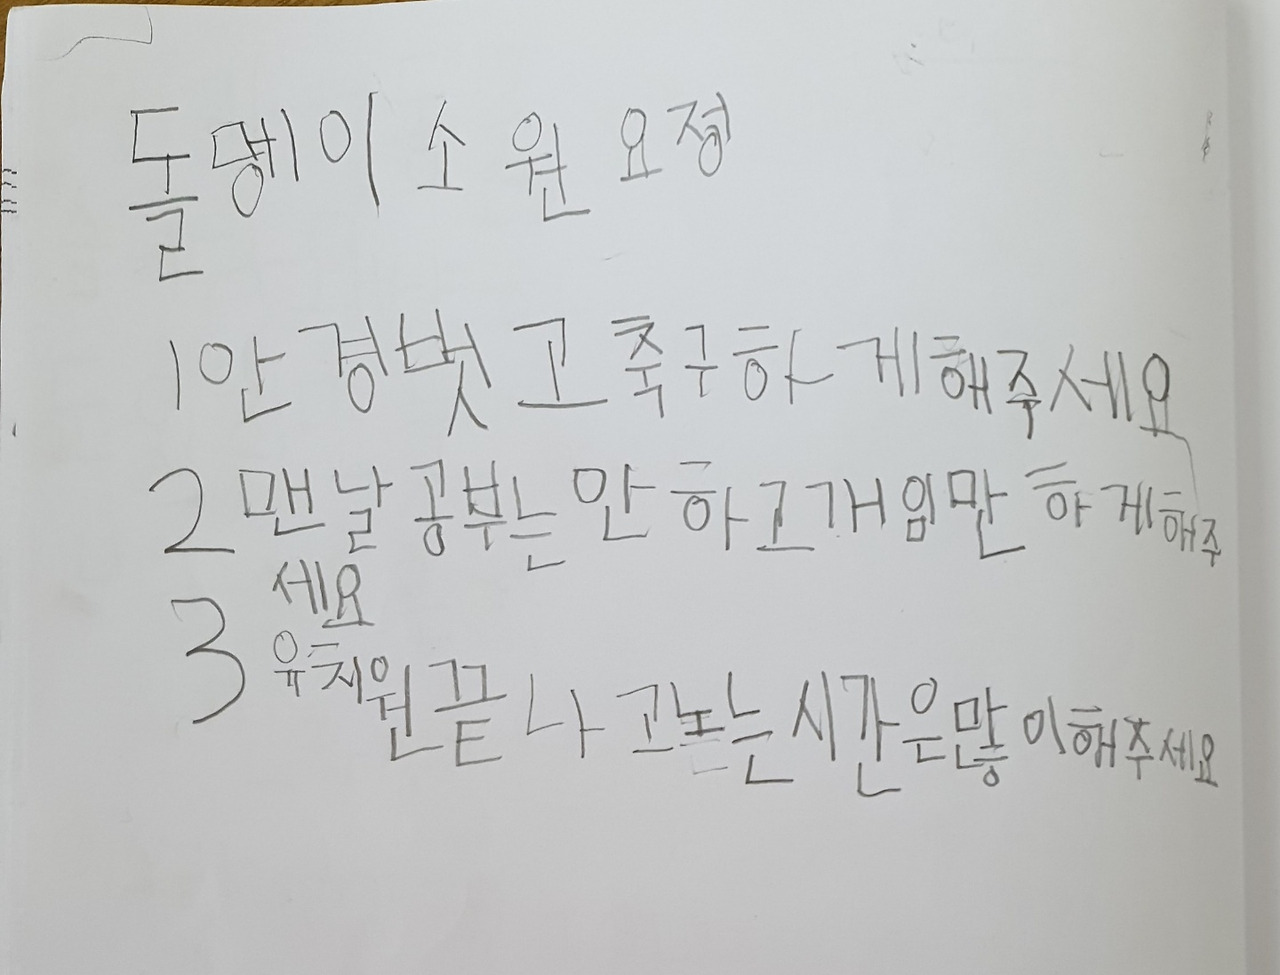 돌멩이 소원 요정
1 안경벗고 축구하게해주세요
2 맨날 공부는 안하고 개임만 하게해주
세요
3 유치원 끝나고 노는 시간은 많이 해주세요